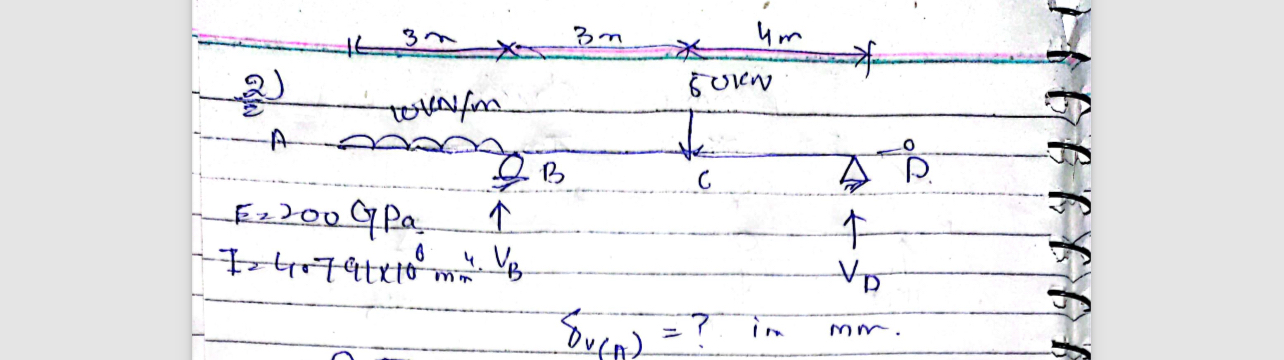 3m 3m 4m
2) 50KN
10KN/m
A B C D
E=200 GPa
I=4.0791x10⁸ mm⁴. V_B V_D
δv(A) = ? in mm.